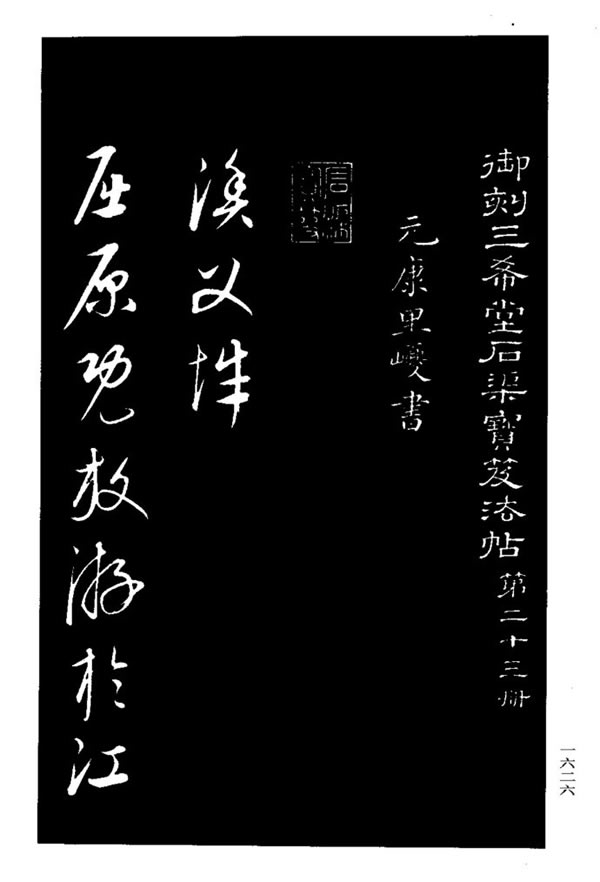 御刻三希堂石渠寶笈法帖第二十三冊
元康里巎書
漁父辭
屈原既放游於江
一六二六